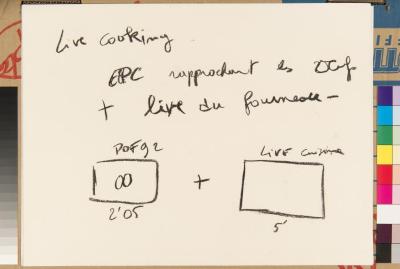 Live cooking
EPC rapprochant les
+ live du fourneau -
POF92
Live cuisine
∞ +
2'05
5'